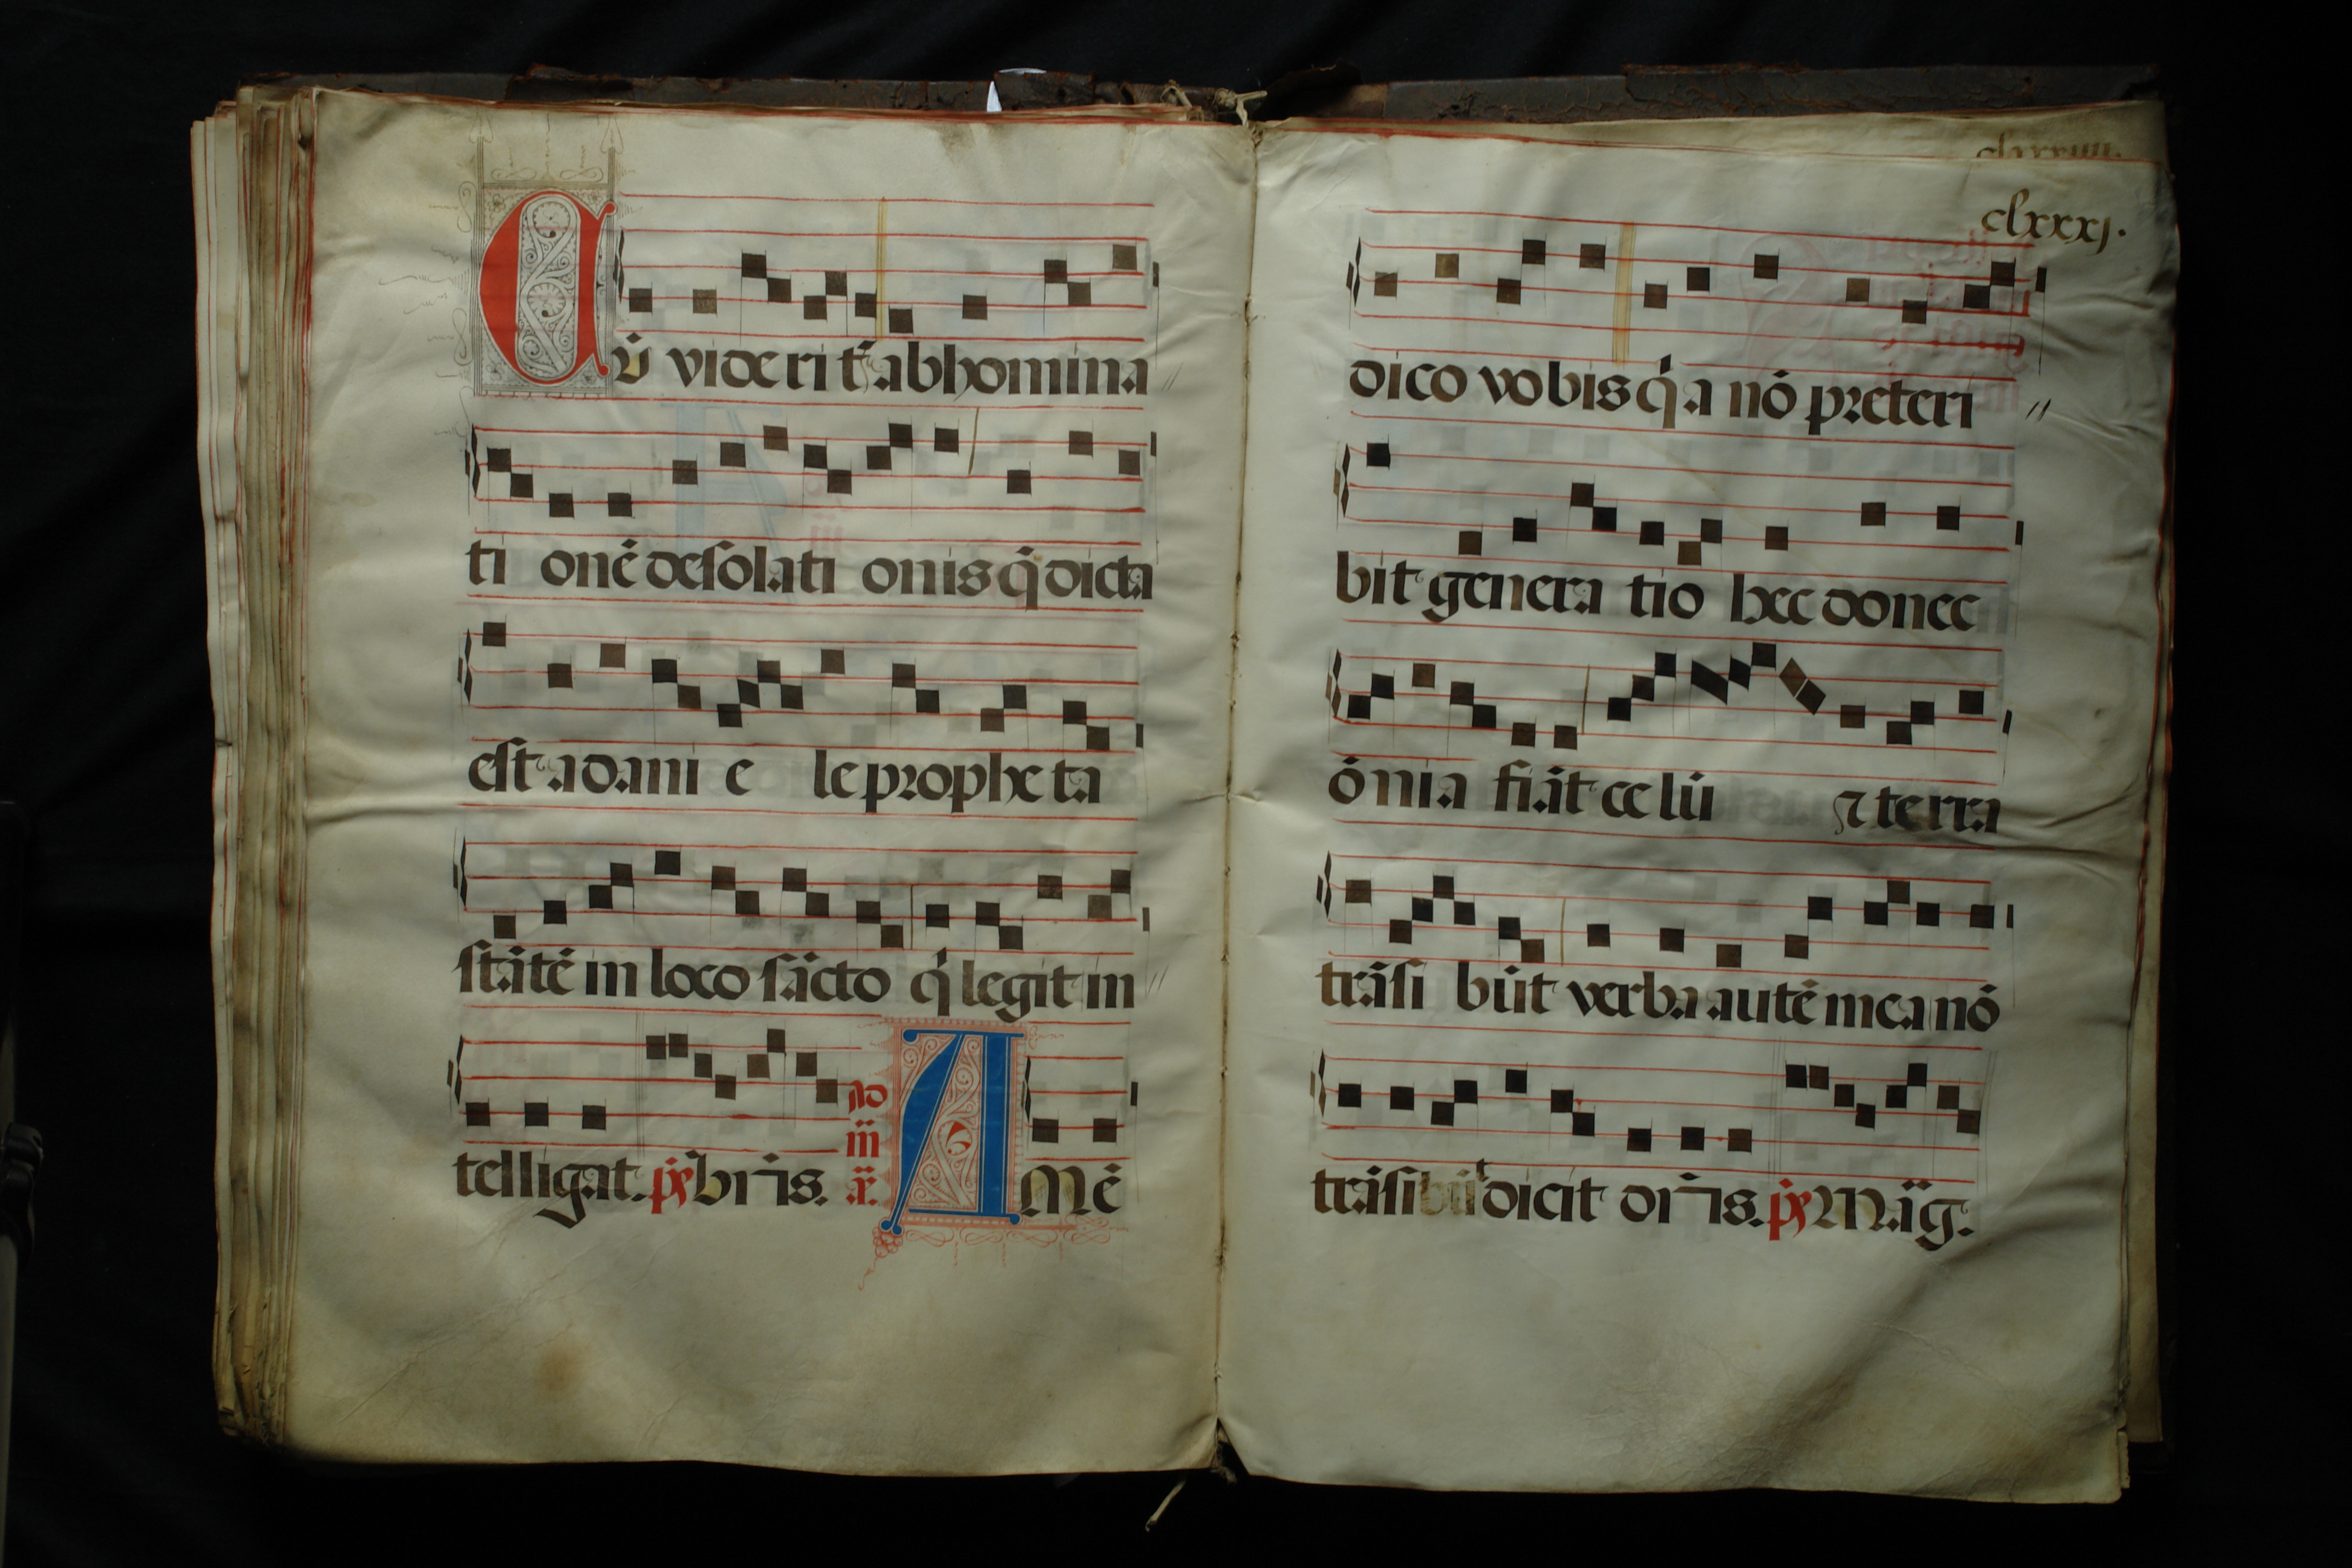 Cū videriť abhomina
ti onē desolati onis q̄ dicta
est a dani e le propheta
stātē in loco sācto q̇ legit in
telligat. pṡ br̄is. Ad
m̄
Amē
clxxxj.
dico vobis q̇a nō preteri
bit genera tio hec donec
ōmnia fiāt celū ⁊ terra
trāsi būt verba autē mea nō
trāsibūt dicit dn̄s. pṡ Māg.